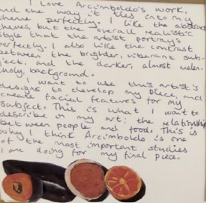 I love Arcimboldo's work,
and the way he
perfectly. I like
but the overall realistic
style that the artist portrays
perfectly. I also like the contrast
between the brighter, vibrant sub-
ject, and the darker, melan-
choly, background.
I want to use this artist's
designs to develop
facial features for my
subject. This is what I want to
describe in my art: the relationship
between people and food. This is
why I think Arcimboldo is one
of the most important studies
I am doing for my final piece.